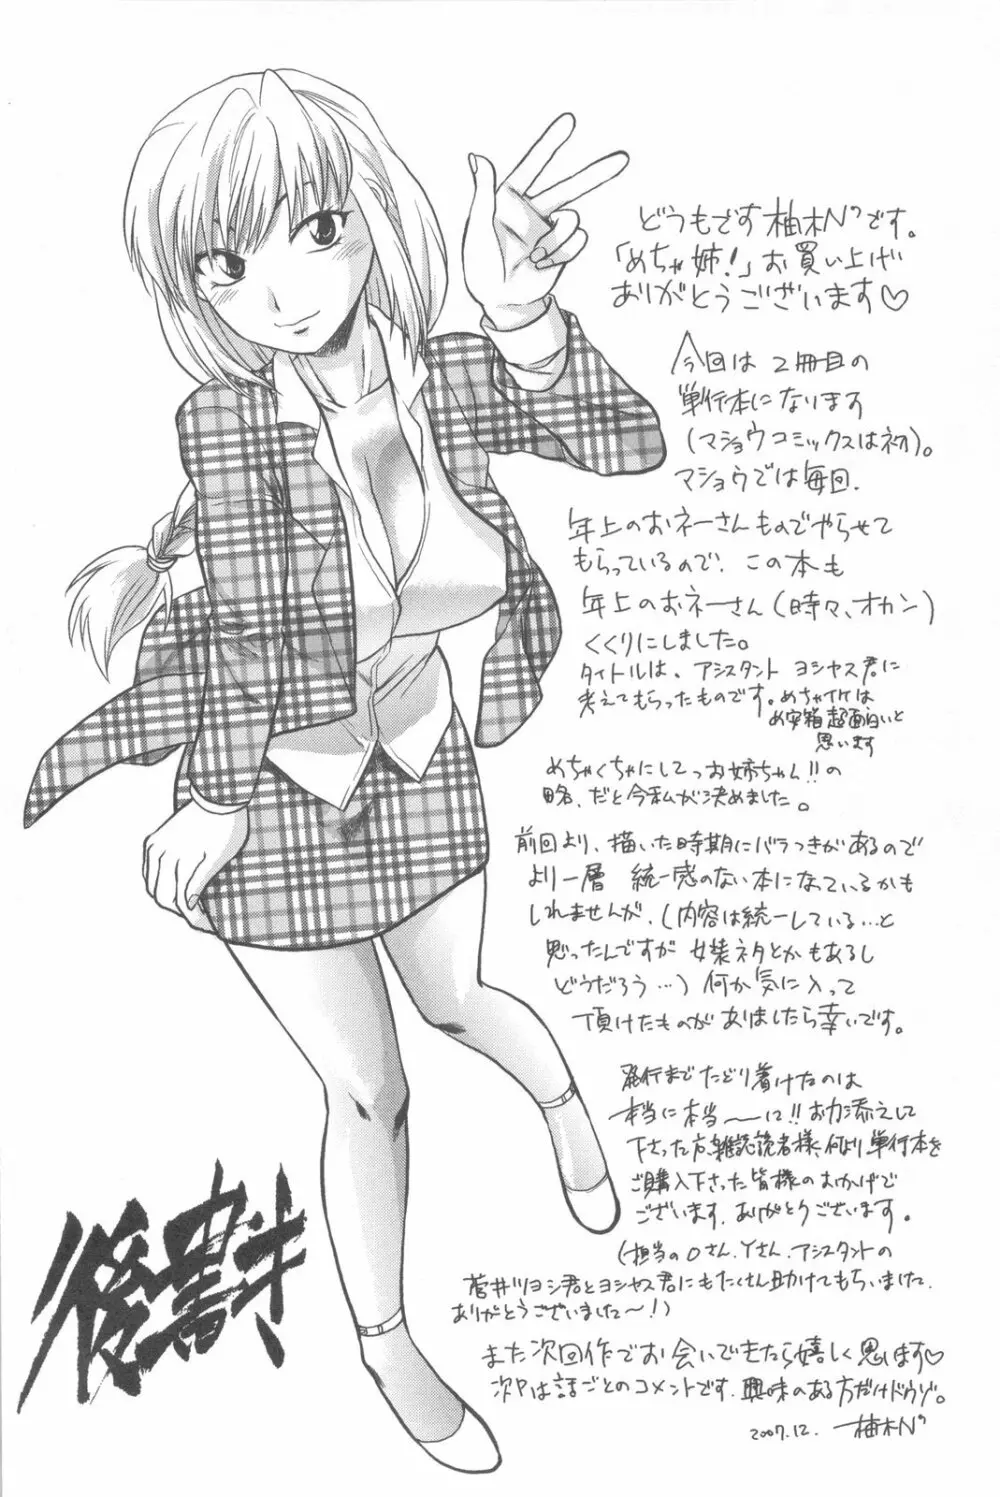 どうもです柚木N'です。
「めちゃ姉!」お買い上げ
ありがとうございます♡
今回は2冊目の
単行本になります
(マショウコミックスは初)。
マショウでは毎回、
年上のおネーさんものでやらせて
もらっているので、この本も
年上のおネーさん(時々、オカン)
くくりにしました。
タイトルは、アシスタント ヨシヤス君に
考えてもらったものです。めちゃイケは
め安箱超面白いと
思います
めちゃくちゃにしてっお姉ちゃん!!の
略、だと今私が決めました。
前回より、描いた時期にバラつきがあるので
より一層 統一感のない本になっているかも
しれませんが、(内容は統一している…と
思ったんですが 女装ネタとかもあるし
どうだろう…)何か気に入って
頂けたものがありましたら幸いです。
発行までたどり着けたのは
本当に本当〜に!!お力添えして
下さった方、雑誌読者様、何より単行本を
ご購入下さった皆様のおかげで
ございます。ありがとうございます。
(担当のOさん、Yさん、アシスタントの
菅井ツヨシ君とヨシヤス君にもたくさん助けてもらいました、
ありがとうございました〜!)
また次回作でお会いできたら嬉しく思います♡
次Pは話ごとのコメントです、興味のある方だけドウゾ。
2007.12. 柚木N'
後書き